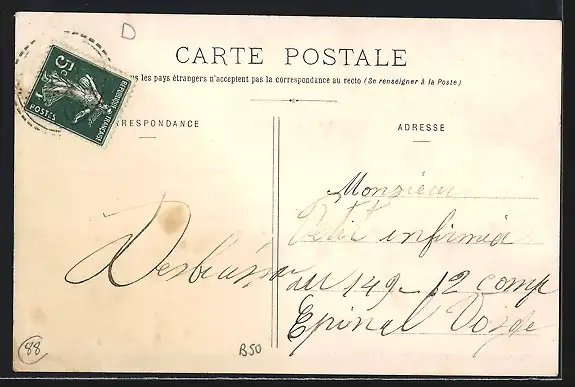 D
CARTE POSTALE
us les pays étrangers n'acceptent pas la correspondance au recto (Se renseigner à la Poste)
5c
POSTES
REPUBLIQUE FRANÇAISE
RRESPONDANCE
ADRESSE
Monsieur
Petit infirmier
au 149 - 12 comp
Epinal Vosge
88
B50